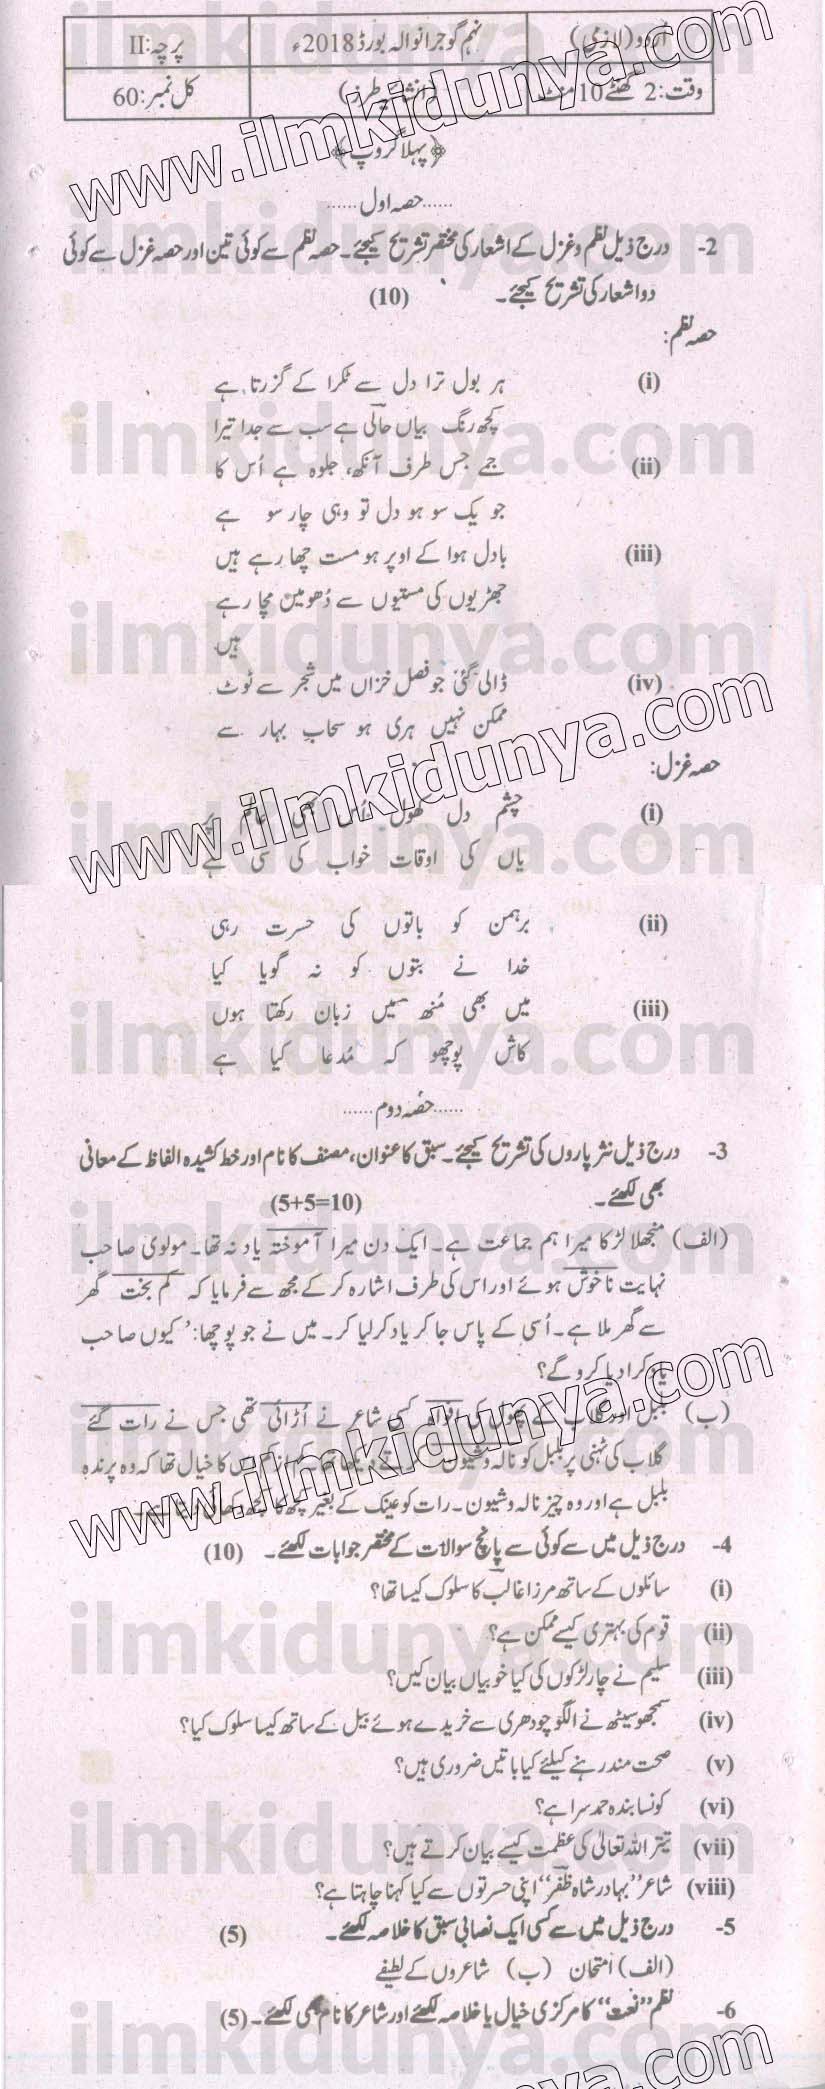 اُردو (لازمی) نہم گوجرانوالہ بورڈ 2018ء پرچہ: II
وقت: 2 گھنٹے 10 منٹ (انشائیہ طرز) کل نمبر: 60
﴿پہلا گروپ﴾
......حصہ اول......
2- درج ذیل نظم و غزل کے اشعار کی مختصر تشریح کیجئے۔ حصہ نظم سے کوئی تین اور حصہ غزل سے کوئی
دو اشعار کی تشریح کیجئے۔ (10)
حصہ نظم:
(i) ہر بول ترا دل سے ٹکرا کے گزرتا ہے
کچھ رنگ بیاں حالی ہے سب سے جدا تیرا
(ii) جمے جس طرف آنکھ، جلوہ ہے اُس کا
جو یک سو ہو دل تو وہی چار سو ہے
(iii) بادل ہوا کے اوپر ہو مست چھا رہے ہیں
جھڑیوں کی مستیوں سے دُھومیں مچا رہے
ہیں
(iv) ڈالی گئی جو فصلِ خزاں میں شجر سے ٹوٹ
ممکن نہیں ہری ہو سحابِ بہار سے
حصہ غزل:
(i) چشم دل کھول اُس بھی عالم
یاں کی اوقات خواب کی سی ہے
(ii) برہمن کو باتوں کی حسرت رہی
خدا نے بتوں کو نہ گویا کیا
(iii) میں بھی مُنھ میں زبان رکھتا ہوں
کاش پوچھو کہ مُدعا کیا ہے
......حصہ دوم......
3- درج ذیل نثر پاروں کی تشریح کیجئے۔ سبق کا عنوان، مصنف کا نام اور خط کشیدہ الفاظ کے معانی
بھی لکھئے۔ (5+5=10)
(الف) منجھلا لڑکا میرا ہم جماعت ہے۔ ایک دن میرا آموختہ یاد نہ تھا۔ مولوی صاحب
نہایت ناخوش ہوئے اور اس کی طرف اشارہ کر کے مجھ سے فرمایا کہ کم بخت گھر
سے گھر ملا ہے۔ اُسی کے پاس جا کر یاد کر لیا کر۔ میں نے جو پوچھا: 'کیوں صاحب
یاد کرا دیا کرو گے؟
(ب) بلبل اور گلاب کے پھول کی افواہ کسی شاعر نے اُڑائی تھی جس نے رات گئے
گلاب کی ٹہنی پر بلبل کو نالہ و شیون کرتے دیکھا تھا۔ کم از کم اس کا خیال تھا کہ وہ پرندہ
بلبل ہے اور وہ چیز نالہ و شیون۔ رات کو عینک کے بغیر کچھ کا کچھ دکھائی
4- درج ذیل میں سے کوئی سے پانچ سوالات کے مختصر جوابات لکھئے۔ (10)
(i) سائلوں کے ساتھ مرزا غالب کا سلوک کیسا تھا؟
(ii) قوم کی بہتری کیسے ممکن ہے؟
(iii) سلیم نے چار لڑکوں کی کیا خوبیاں بیان کیں؟
(iv) سمجھو سیٹھ نے الگو چودھری سے خریدے ہوئے بیل کے ساتھ کیسا سلوک کیا؟
(v) صحت مند رہنے کیلئے کیا باتیں ضروری ہیں؟
(vi) کونسا بندہ حمد سرا ہے؟
(vii) تیتر اللہ تعالیٰ کی عظمت کیسے بیان کرتے ہیں؟
(viii) شاعر "بہادر شاہ ظفر" اپنی حسرتوں سے کیا کہنا چاہتا ہے؟
5- درج ذیل میں سے کسی ایک نصابی سبق کا خلاصہ لکھئے۔ (5)
(الف) امتحان (ب) شاعروں کے لطیفے
6- نظم "نعت" کا مرکزی خیال یا خلاصہ لکھئے اور شاعر کا نام بھی لکھئے۔ (5)
www.ilmkidunya.com
ilmkidunya.com